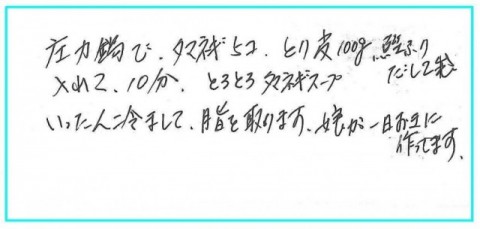 圧力鍋で、タマネギ5コ、とり皮100g、塩ふり
入れて、10分、とろとろタマネギスープ
だし2袋
いったん冷まして、脂を取ります、娘が一日おきに
作ってます。